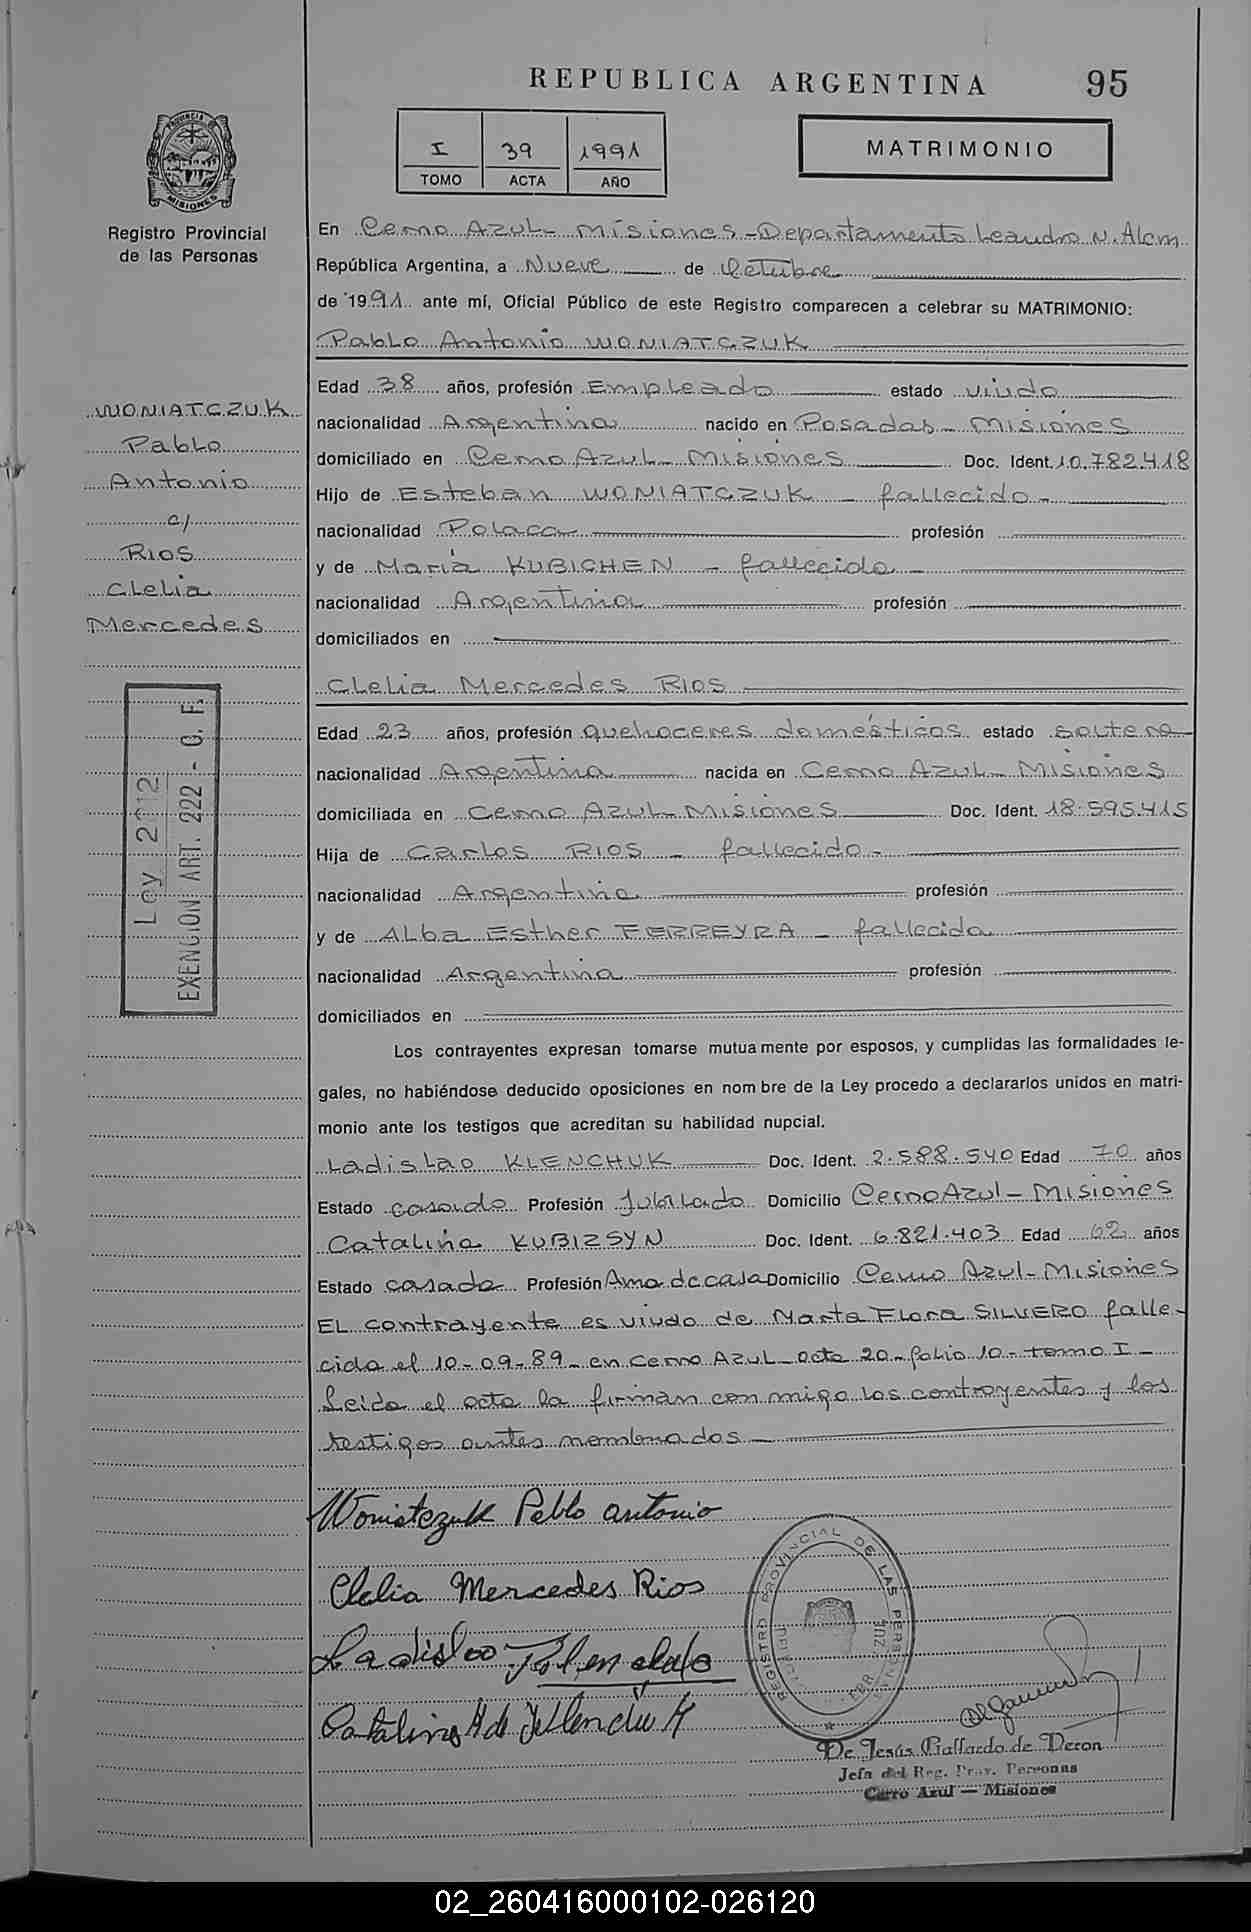 REPUBLICA ARGENTINA 95
I 39 1991
TOMO ACTA AÑO
MATRIMONIO
PROVINCIA DE MISIONES
Registro Provincial
de las Personas
WONIATCZUK
Pablo
Antonio
c/
RIOS
Clelia
Mercedes
Ley 2112
EXENCION ART. 222 - C. F.
En Cerro Azul - Misiones - Departamento Leandro N. Alem
República Argentina, a Nueve de Octubre
de 1991 ante mí, Oficial Público de este Registro comparecen a celebrar su MATRIMONIO:
Pablo Antonio WONIATCZUK
Edad 38 años, profesión Empleado estado viudo
nacionalidad Argentina nacido en Posadas - Misiones
domiciliado en Cerro Azul - Misiones Doc. Ident. 10.782.418
Hijo de Esteban WONIATCZUK - fallecido -
nacionalidad Polaca profesión
y de María KUBICHEN - fallecida -
nacionalidad Argentina profesión
domiciliados en
Clelia Mercedes RIOS
Edad 23 años, profesión quehaceres domésticos estado soltera
nacionalidad Argentina nacida en Cerro Azul - Misiones
domiciliada en Cerro Azul - Misiones Doc. Ident. 18.595.415
Hija de Carlos RIOS - fallecido -
nacionalidad Argentina profesión
y de Alba Esther FERREYRA - fallecida
nacionalidad Argentina profesión
domiciliados en
Los contrayentes expresan tomarse mutuamente por esposos, y cumplidas las formalidades le-
gales, no habiéndose deducido oposiciones en nombre de la Ley procedo a declararlos unidos en matri-
monio ante los testigos que acreditan su habilidad nupcial.
Ladislao KLENCHUK Doc. Ident. 2.588.540 Edad 70 años
Estado casado Profesión Jubilado Domicilio Cerro Azul - Misiones
Catalina KUBIZSYN Doc. Ident. 6.821.403 Edad 62 años
Estado casada Profesión Ama de casa Domicilio Cerro Azul - Misiones
EL contrayente es viudo de Marta Flora SILVERO falle-
cida el 10-09-89 - en Cerro Azul - acta 20 - folio 10 - tomo I -
Leida el acta la firman conmigo los contrayentes y los
testigos antes nombrados
Woniatczuk Pablo antonio
Clelia Mercedes Rios
Ladislao
Catalina
REGISTRO PROVINCIAL DE LAS PERSONAS
De Jesús Gallardo de Deron
Jefa del Reg. Prov. Personas
Cerro Azul — Misiones
02_260416000102-026120